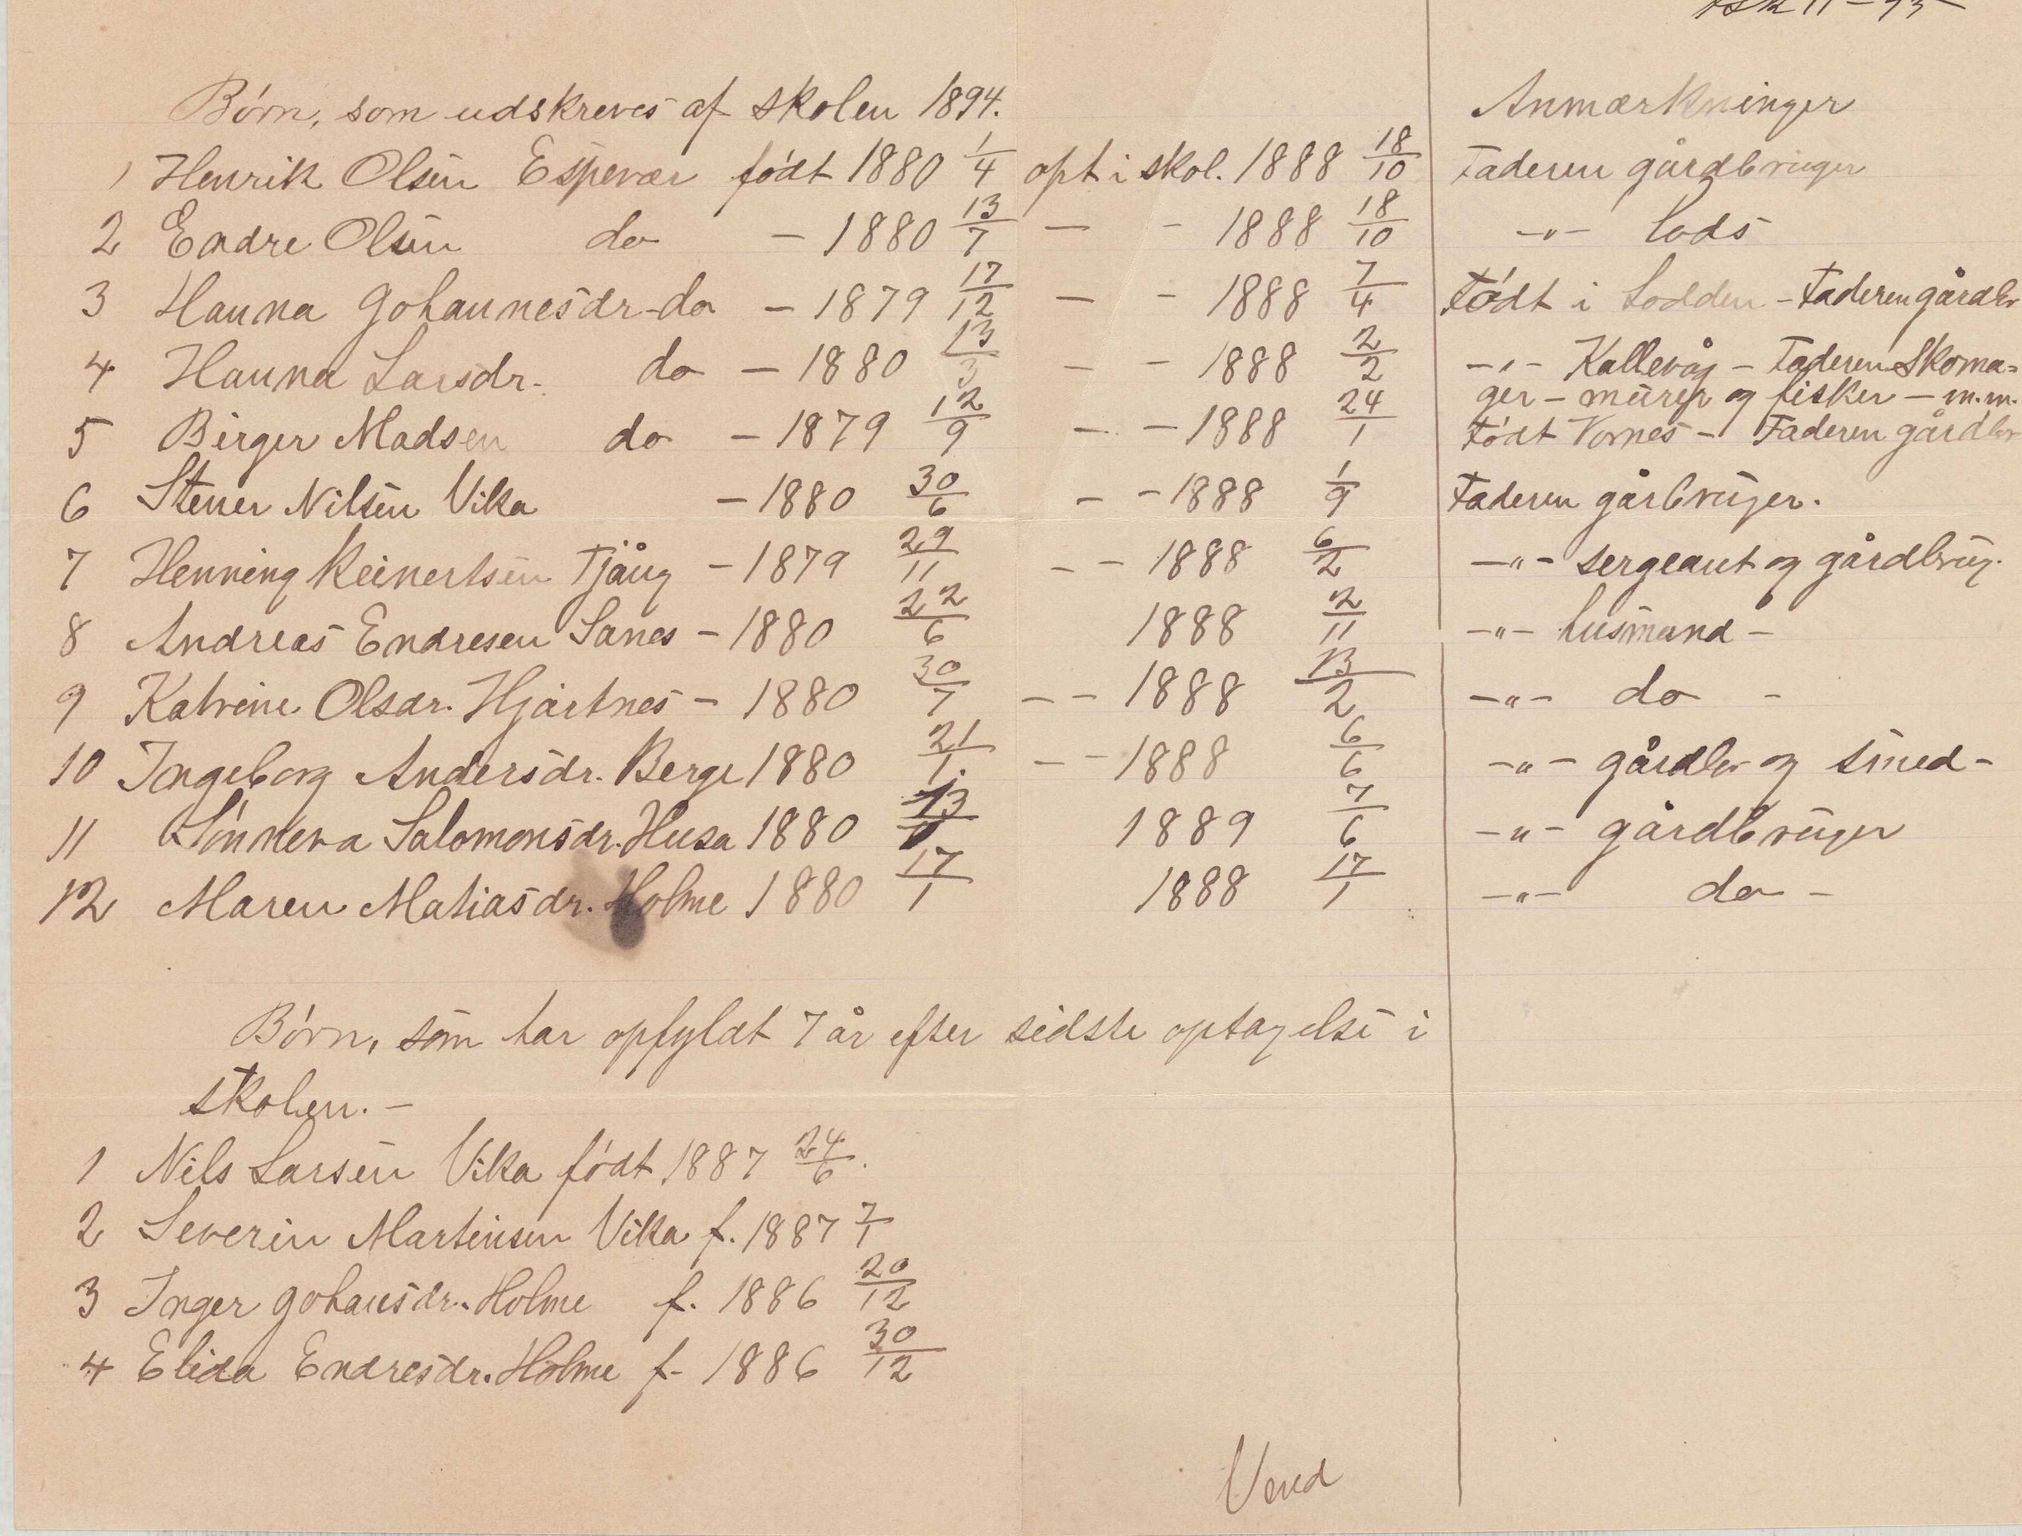 Børn, som udskreves af skolen 1894. Anmærkninger
1 Henrik Olsen Espevær født 1880 1/4 opt i skol. 1888 18/10 Faderen gårdbruger
2 Endre Olsen do - 1880 13/7 - - 1888 18/10 -"- Lods
3 Hanna Johannesdr. do - 1879 17/12 - - 1888 7/4 Født i Lodden - Faderen gårdbr
4 Hanna Larsdr. do - 1880 13/3 - - 1888 2/2 -"- Kallevåg - Faderen Skoma=
ger - murer og fisker - m.m.
5 Birger Madsen do - 1879 12/9 - - 1888 24/1 Født Vornes - Faderen gårdbr
6 Stener Nilsen Vika - 1880 30/6 - - 1888 1/9 Faderen gårbruger.
7 Henning Reinertsen Tjång - 1879 29/11 - - 1888 6/2 -"- sergeant og gårdbrug.
8 Andreas Endresen Sanes - 1880 22/6 1888 2/11 -"- husmand -
9 Katrine Olsdr. Hjartnes - 1880 30/7 - - 1888 13/2 -"- do -
10 Ingeborg Andersdr. Berge 1880 21/1 - - 1888 6/6 -"- gårdbr og smed -
11 Sønneva Salomonsdr. Husa 1880 1889 7/6 -"- gårdbruger
12 Maren Matiasdr. Holme 1880 17/1 1888 17/1 -"- do -
Børn, som har opfyldt 7 år efter sidste optagelse i
skolen. -
1 Nils Larsen Vika født 1887 24/6.
2 Severin Martinsen Vika f. 1887 7/1
3 Inger Johansdr. Holme f. 1886 20/12
4 Elida Endresdr. Holme f- 1886 30/12
Vend